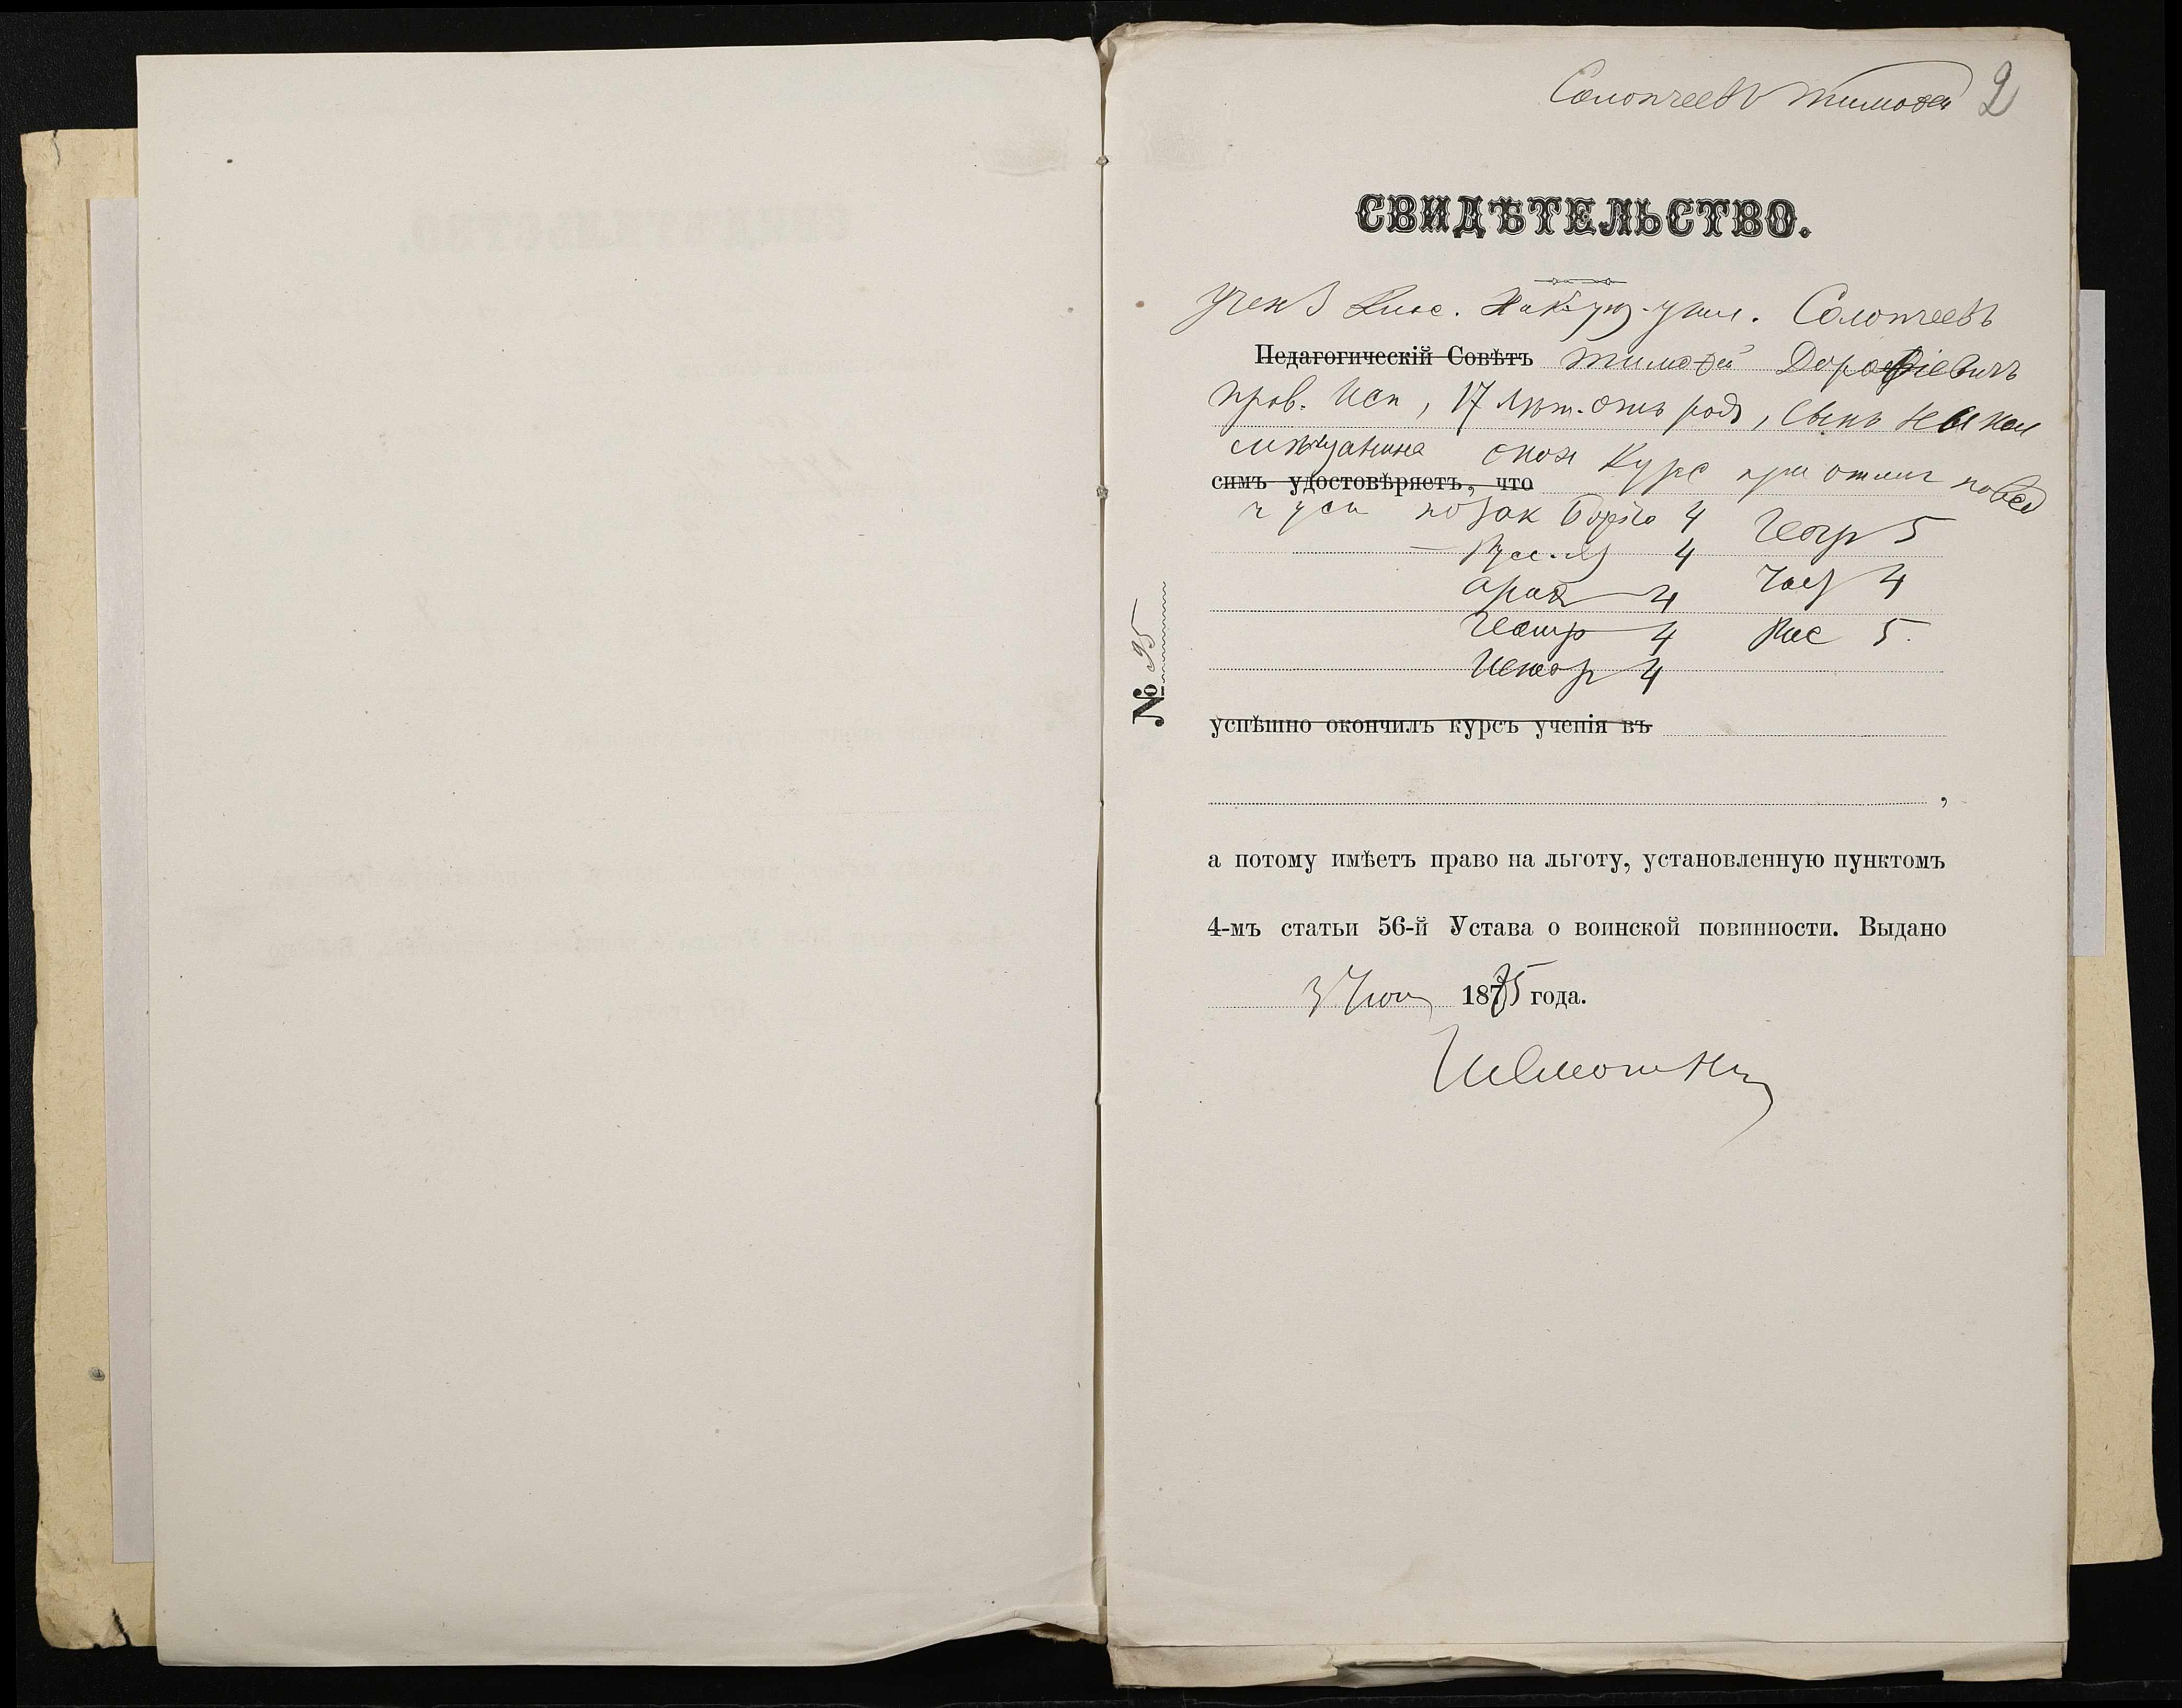 Солопчеевъ Тимофей 2
СВИДѢТЕЛЬСТВО.
учен 3 клас. Солопчеевъ
Педагогическій Совѣтъ Тимофей Дорофіевичъ
прав. исп, 17 лѣт. отъ род, сынъ
мѣщанина окон курс при отлич повед
симъ удостовѣряетъ, что
и усп по Зак Божію 4 Геогр 5
Рус. яз 4
Ариф 4 Чис 4
Геомр 4 Рис 5.
Истор 4
№ 95
успѣшно окончилъ курсъ ученія въ
,
а потому имѣетъ право на льготу, установленную пунктомъ
4-мъ статьи 56-й Устава о воинской повинности. Выдано
3 Іюн 1875 года.